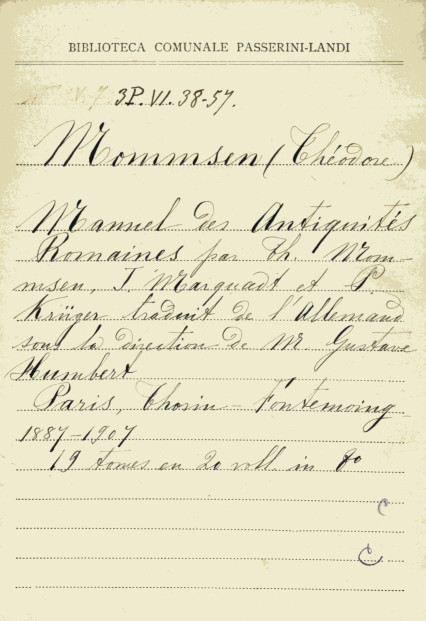 BIBLIOTECA COMUNALE PASSERINI-LANDI
3P.VI.38-57.
Mommsen (Théodore)
Manuel des Antiquités
Romaines par Th. Mom-
msen, J. Marquadt et P.
Krüger traduit de l'Allemand
sous la direction de M Gustave
Humbert
Paris, Thorin - Fontemoing
1887-1907
19 tomes en 20 voll. in 8º
C
C